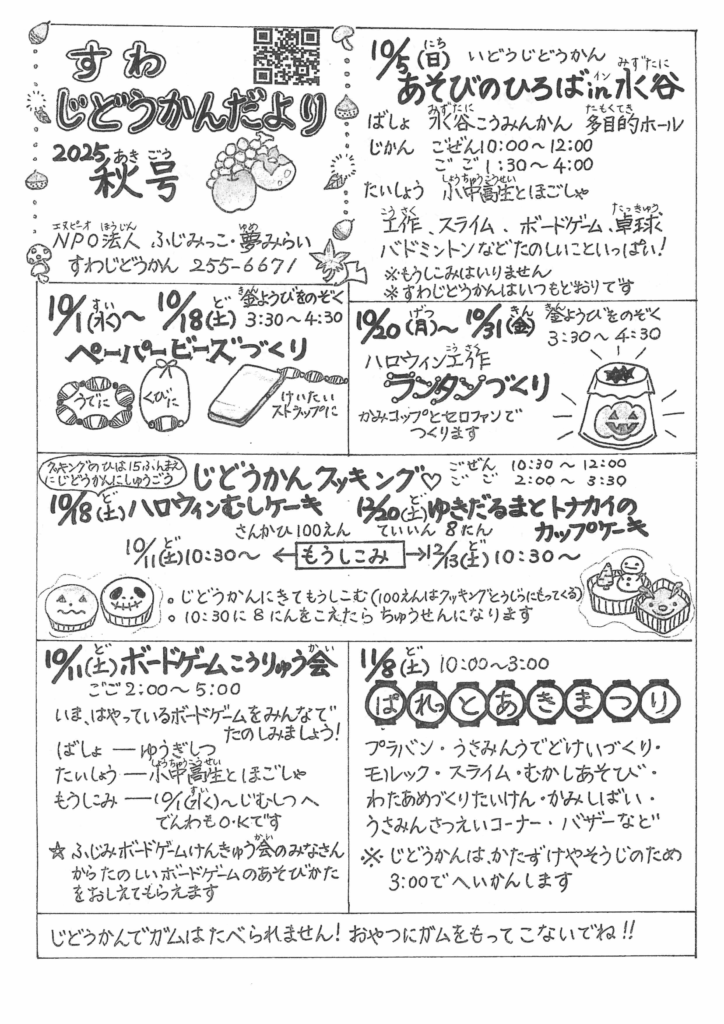 すわ
じどうかんだより
2025 秋号
あき ごう
エヌピーオ ほうじん ゆめ
NPO法人 ふじみっこ・夢みらい
すわじどうかん 255-6671
10/5(日) いどうじどうかん
にち
みずたに
あそびのひろばin水谷
イン
みずたに たもくてき
ばしょ 水谷こうみんかん 多目的ホール
じかん ごぜん10:00〜12:00
ごご 1:30〜4:00
しょうちゅうこうせい
たいしょう 小中高生とほごしゃ
こうさく たっきゅう
工作、スライム、ボードゲーム、卓球、
バドミントンなどたのしいこといっぱい!
※もうしこみはいりません
※すわじどうかんはいつもどおりです
すい ど きん
10/1(水)〜10/18(土) 金ようびをのぞく
3:30〜4:30
ペーパービーズづくり
うでに
くびに
けいたい
ストラップに
げつ きん きん
10/20(月)〜10/31(金) 金ようびをのぞく
3:30〜4:30
こうさく
ハロウィン工作
ランタンづくり
かみコップとセロファンで
つくります
クッキングのひは15ふんまえ
にじどうかんにしゅうごう
じどうかんクッキング♡
ごぜん 10:30〜12:00
ごご 2:00〜3:30
ど ど
10/18(土)ハロウィンむしケーキ 12/20(土)ゆきだるまとトナカイの
カップケーキ
さんかひ100えん ていいん 8にん
ど ど
10/11(土)10:30〜 ←もうしこみ→ 12/13(土)10:30〜
。じどうかんにきてもうしこむ(100えんはクッキングとうじつにもってくる)
。10:30に8にんをこえたら ちゅうせんになります
ど かい
10/11(土)ボードゲームこうりゅう会
ごご2:00〜5:00
いま、はやっているボードゲームをみんなで
たのしみましょう!
ばしょ ― ゆうぎしつ
しょうちゅうこうせい
たいしょう ― 小中高生とほごしゃ
すい
もうしこみ ― 10/1(水)〜じむしつへ
でんわもO・Kです
かい
☆ ふじみボードゲームけんきゅう会のみなさん
からたのしいボードゲームのあそびかた
をおしえてもらえます
ど
11/8(土) 10:00〜3:00
ぱれっとあきまつり
プラバン・うさみんうでどけいづくり・
モルック・スライム・むかしあそび・
わたあめづくりたいけん・かみしばい・
うさみんさつえいコーナー・バザーなど
※じどうかんは、かたずけやそうじのため
3:00でへいかんします
じどうかんでガムはたべられません! おやつにガムをもってこないでね!!